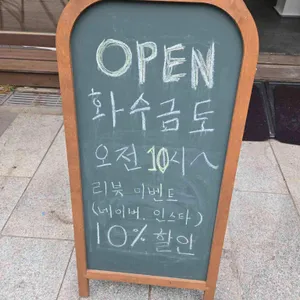 OPEN
화수금토
오전 10시~
리뷰 이벤트
(네이버. 인스타)
10% 할인